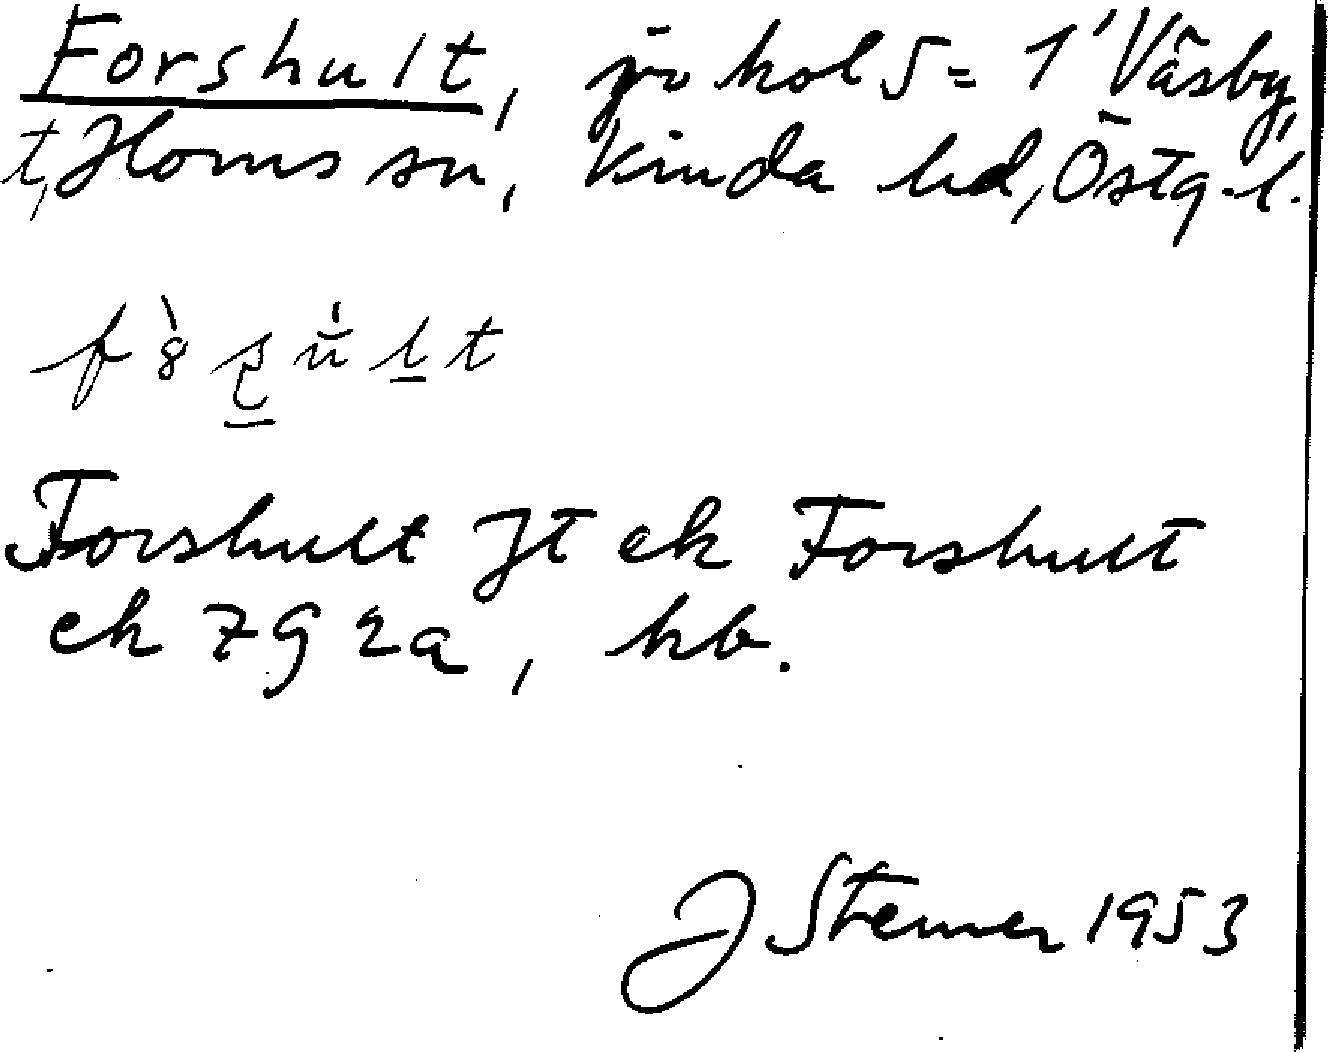 Forshult, jo kol 5 = 1 Väsby,
t, Horns sn, Kinda hd, Östg. l.
Forshult Jt ek Forshult
ek 7g 2a, kb.
J Stemer 1953